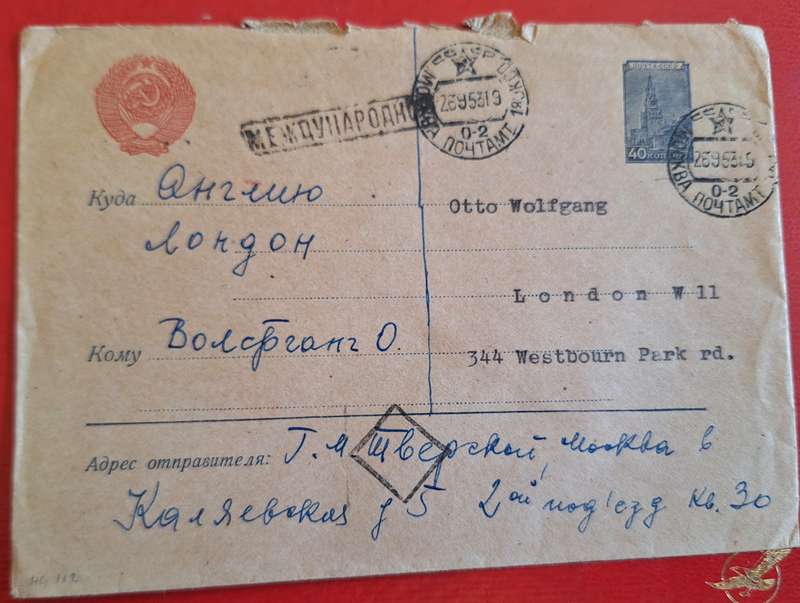 МЕЖДУНАРОДНО
МОСКВА ПОЧТАМТ
0-2
ПОЧТА СССР
40 КОП
МОСКВА ПОЧТАМТ
0-2
Куда Англию
Лондон
Кому Волфганг О.
Otto Wolfgang
London W 11
344 Westbourn Park rd.
Адрес отправителя: Г. М Тверской, Москва в
Каляевская д 5 2ой под'езд кв. 30